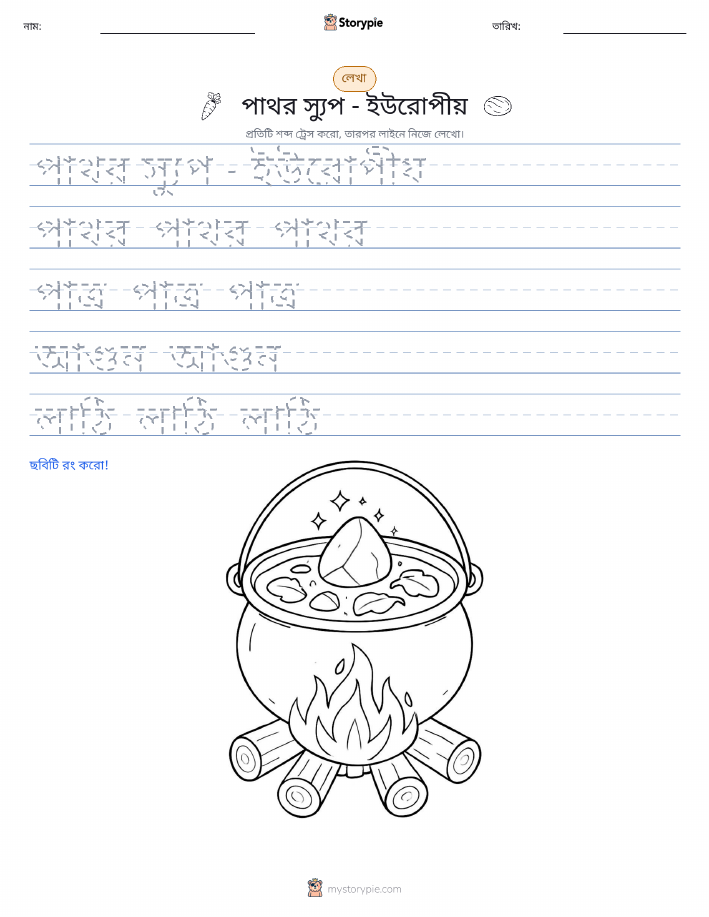 নাম:
Storypie
তারিখ:
লেখা
পাথর স্যুপ - ইউরোপীয়
প্রতিটি শব্দ ট্রেস করো, তারপর লাইনে নিজে লেখো।
পাথর স্যুপ - ইউরোপীয়
পাথর পাথর পাথর
পাত্র পাত্র পাত্র
আগুন আগুন
লাঠি লাঠি লাঠি
ছবিটি রং করো!
mystorypie.com